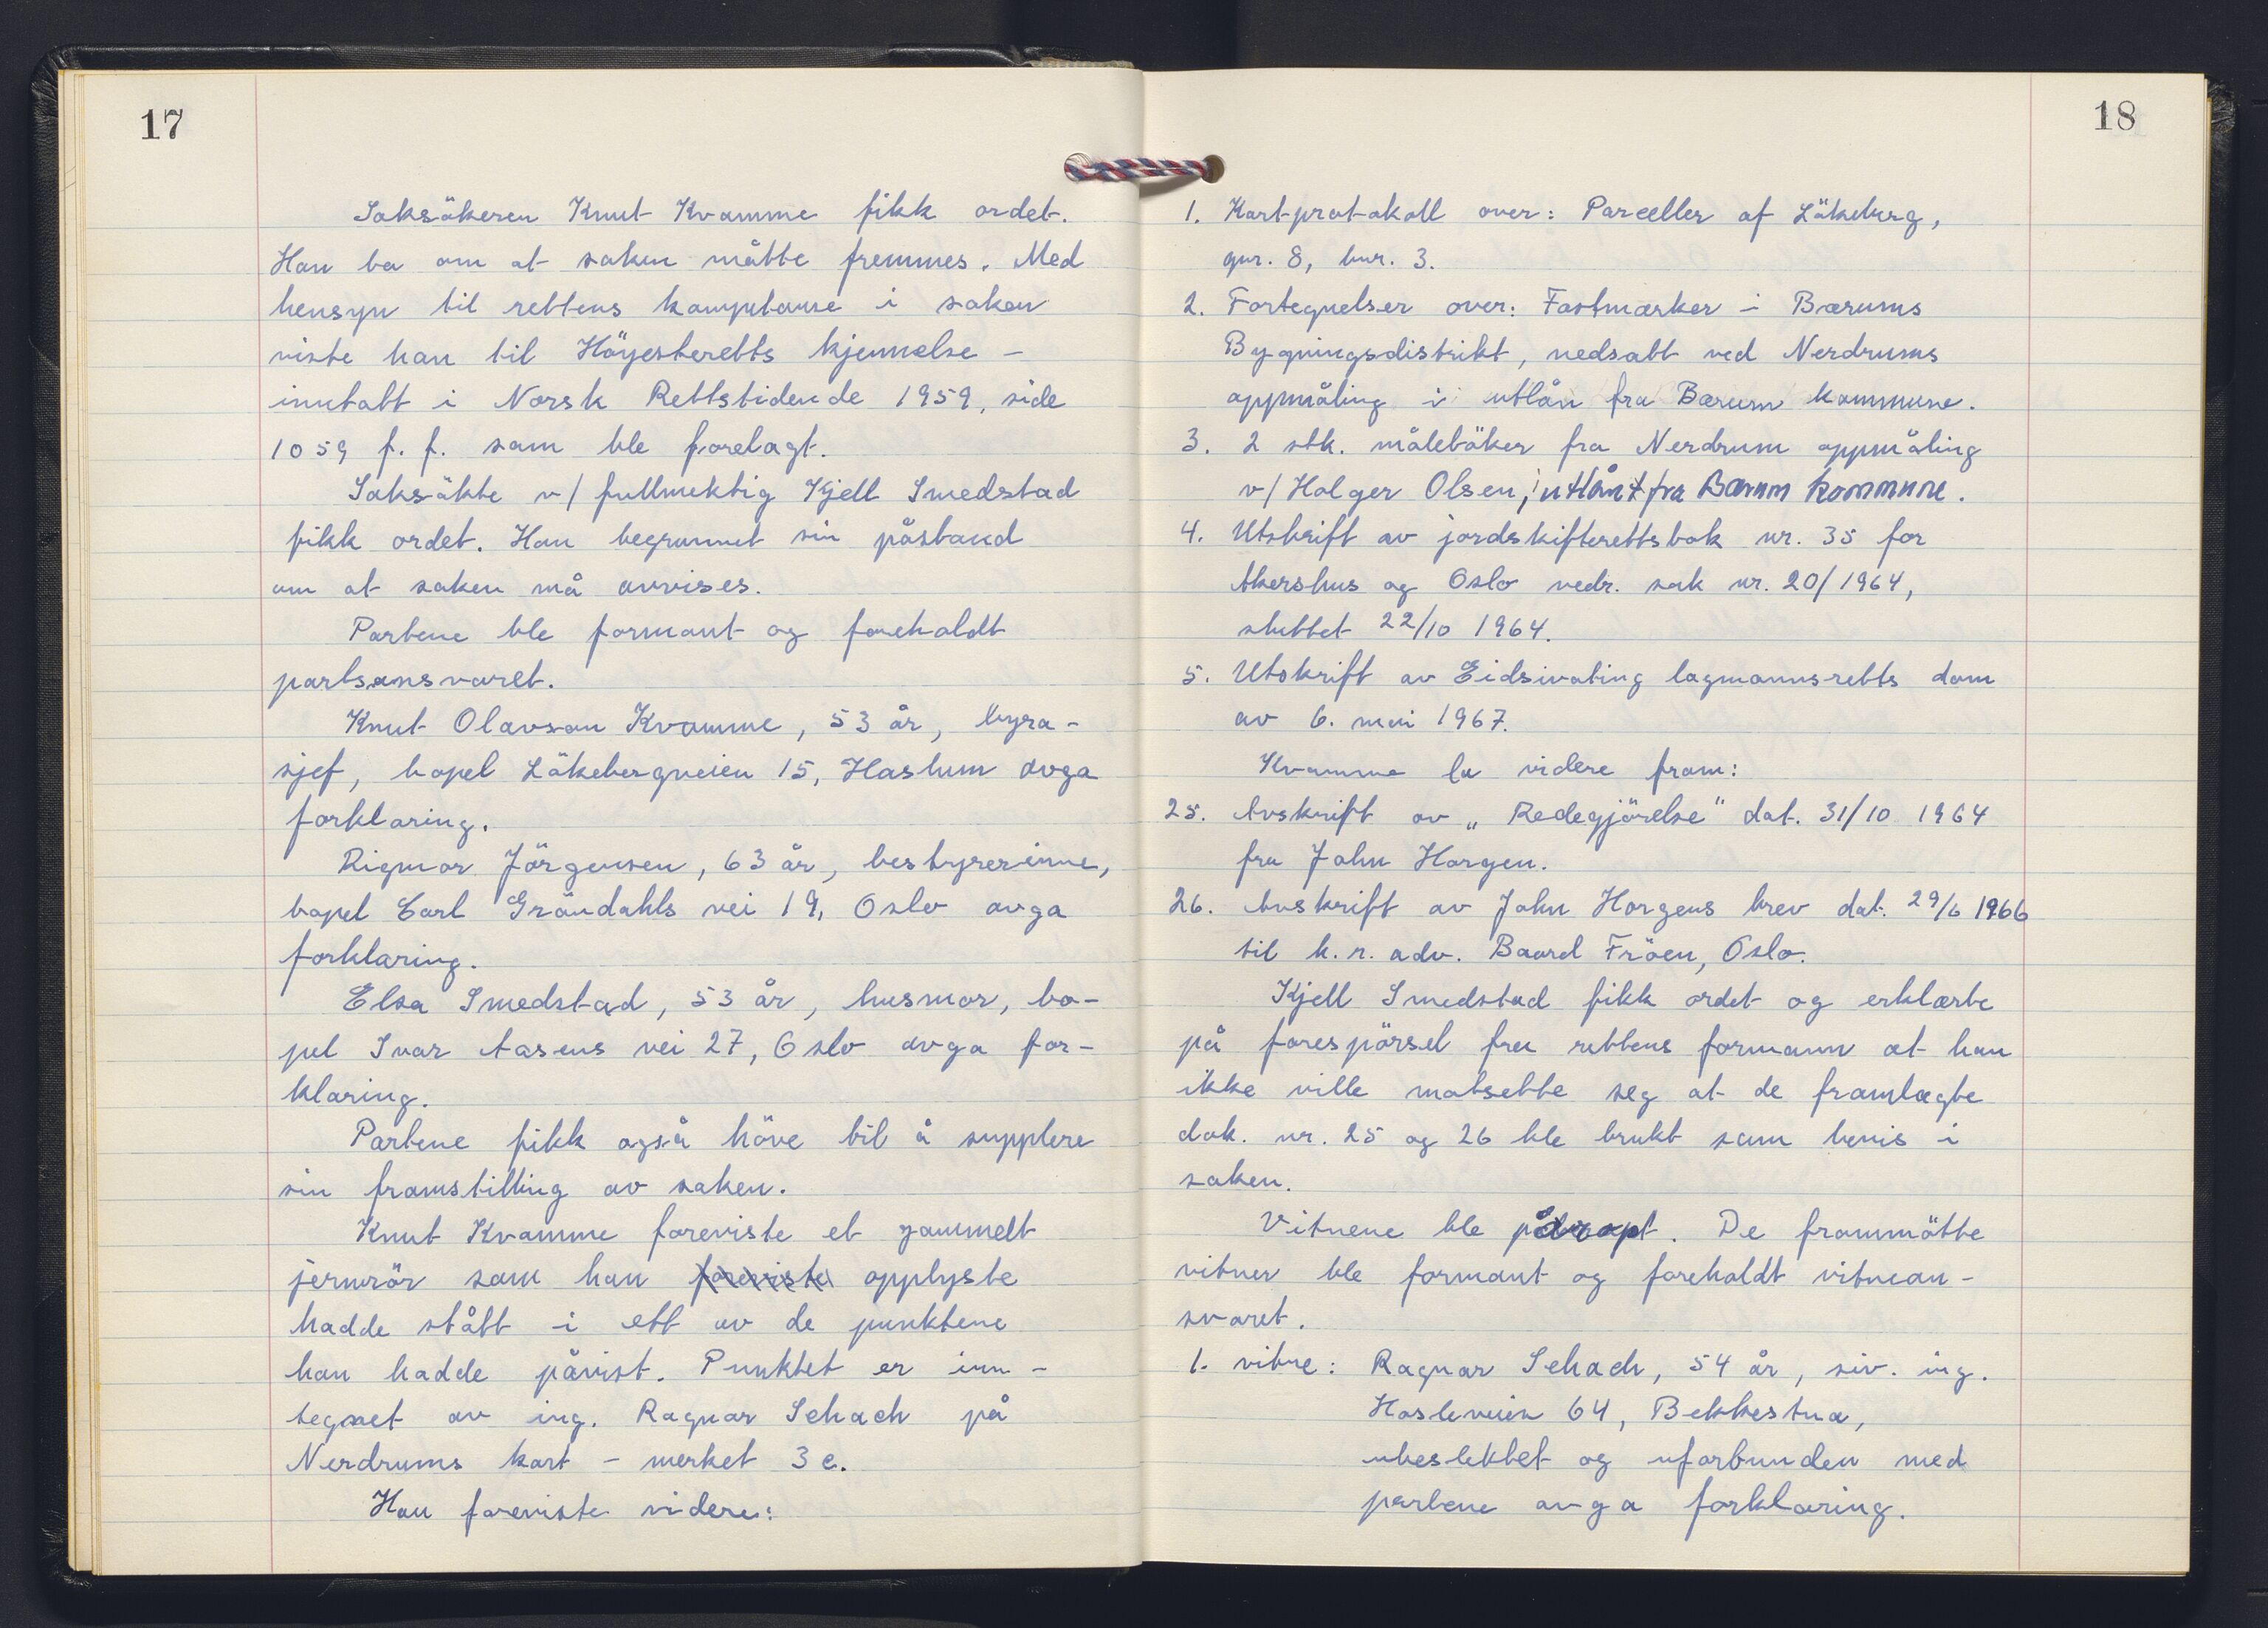 17
Saksökeren Knut Kvamme fikk ordet.
Han ba om at saken måtte fremmes. Med
hensyn til rettens kompetanse i saken
viste han til Höyesteretts kjennelse -
inntatt i Norsk Rettstidende 1959, side
1059 f. f. som ble forelagt.
Saksökte v/ fullmektig Kjell Smedstad
fikk ordet. Han begrunnet sin påstand
om at saken må avvises.
Partene ble formant og foreholdt
partsansvaret.
Knut Olavson Kvamme, 53 år, byrå-
sjef, bopel Lökebergveien 15, Haslum avga
forklaring.
Rigmor Jörgensen, 63 år, bestyrerinne,
bopel Carl Gröndahls vei 19, Oslo avga
forklaring.
Elsa Smedstad, 53 år, husmor, bo-
pel Ivar Aasens vei 27, Oslo avga for-
klaring.
Partene fikk også höve til å supplere
sin framstilling av saken.
Knut Kvamme foreviste et gammelt
jernrör som han foreviste opplyste
hadde stått i ett av de punktene
han hadde påvist. Punktet er inn-
tegnet av ing. Ragnar Schach på
Nerdrums kart - merket 3 c.
Han foreviste videre:
18
1. Kartprotokoll over: Parceller af Lökeberg,
gnr. 8, bnr. 3.
2. Fortegnelser over: Fastmærker i Bærums
Bygningsdistrikt, nedsatt ved Nerdrums
oppmåling i utlån fra Bærum kommune.
3. 2 stk. måleböker fra Nerdrum oppmåling
v/ Holger Olsen, utlånt fra Bærum kommune.
4. Utskrift av jordskifterettsbok nr. 35 for
Akershus og Oslo vedr. sak nr. 20/1964,
sluttet 22/10 1964.
5. Utskrift av Eidsivating lagmannsretts dom
av 6. mai 1967.
Kvamme la videre fram:
25. Avskrift av „Redegjörelse" dat. 31/10 1964
fra John Horgen.
26. Avskrift av John Horgens brev dat. 29/6 1966
til h.r. adv. Baard Fröen, Oslo.
Kjell Smedstad fikk ordet og erklærte
på forespörsel fra rettens formann at han
ikke ville motsette seg at de framlagte
dok. nr. 25 og 26 ble brukt som bevis i
saken.
Vitnene ble påropt. De frammötte
vitner ble formant og foreholdt vitnean-
svaret.
1. vitne: Ragnar Schach, 54 år, siv. ing.
Hasleveien 64, Bekkestua,
ubeslektet og uforbunden med
partene avga forklaring.